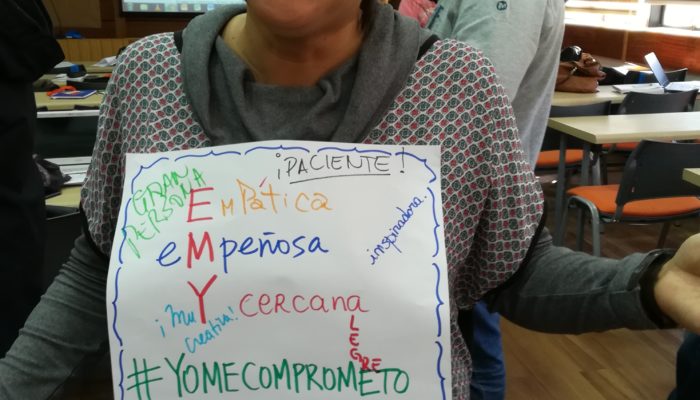 ¡PACIENTE!
GRAN
PERSONA
EMPática
eMPeñosa
inspiradora.
Y CERCANA
LEGRE
¡muy
creativa!
#YOMECOMPROMETO